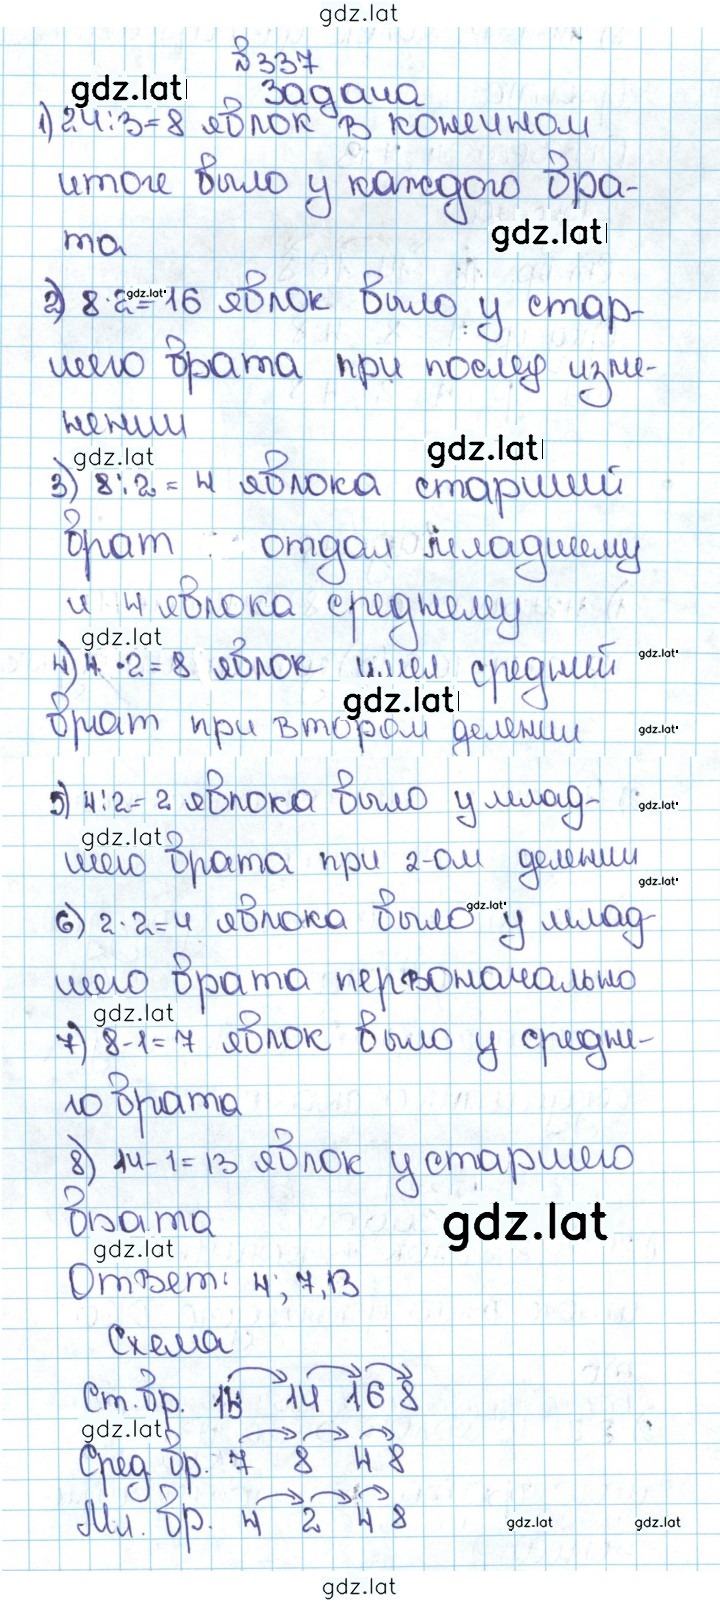 gdz.lat
№337
gdz.lat
Задача
1) 24:3=8 яблок в конечном
итоге было у каждого бра-
gdz.lat
та
2) 8·2=16 яблок было у стар-
gdz.lat
шего брата при послед изме-
нении
gdz.lat
gdz.lat
3) 8:2=4 яблока старший
брат отдал младшему
и 4 яблока среднему
gdz.lat
4) 4·2=8 яблок имел средний
gdz.lat
gdz.lat
брат при втором делении
gdz.lat
5) 4:2=2 яблока было у млад-
gdz.lat
gdz.lat
шего брата при 2-ом делении
gdz.lat
6) 2·2=4 яблока было у млад-
gdz.lat
шего брата первоначально
gdz.lat
7) 8-1=7 яблок было у средне-
го брата
8) 14-1=13 яблок у старшего
брата
gdz.lat
gdz.lat
Ответ: 4; 7, 13
Схема
Ст. бр. 13 14 16 8
gdz.lat
Сред бр. 7 8 4 8
Мл. бр. 4 2 4 8
gdz.lat gdz.lat
gdz.lat